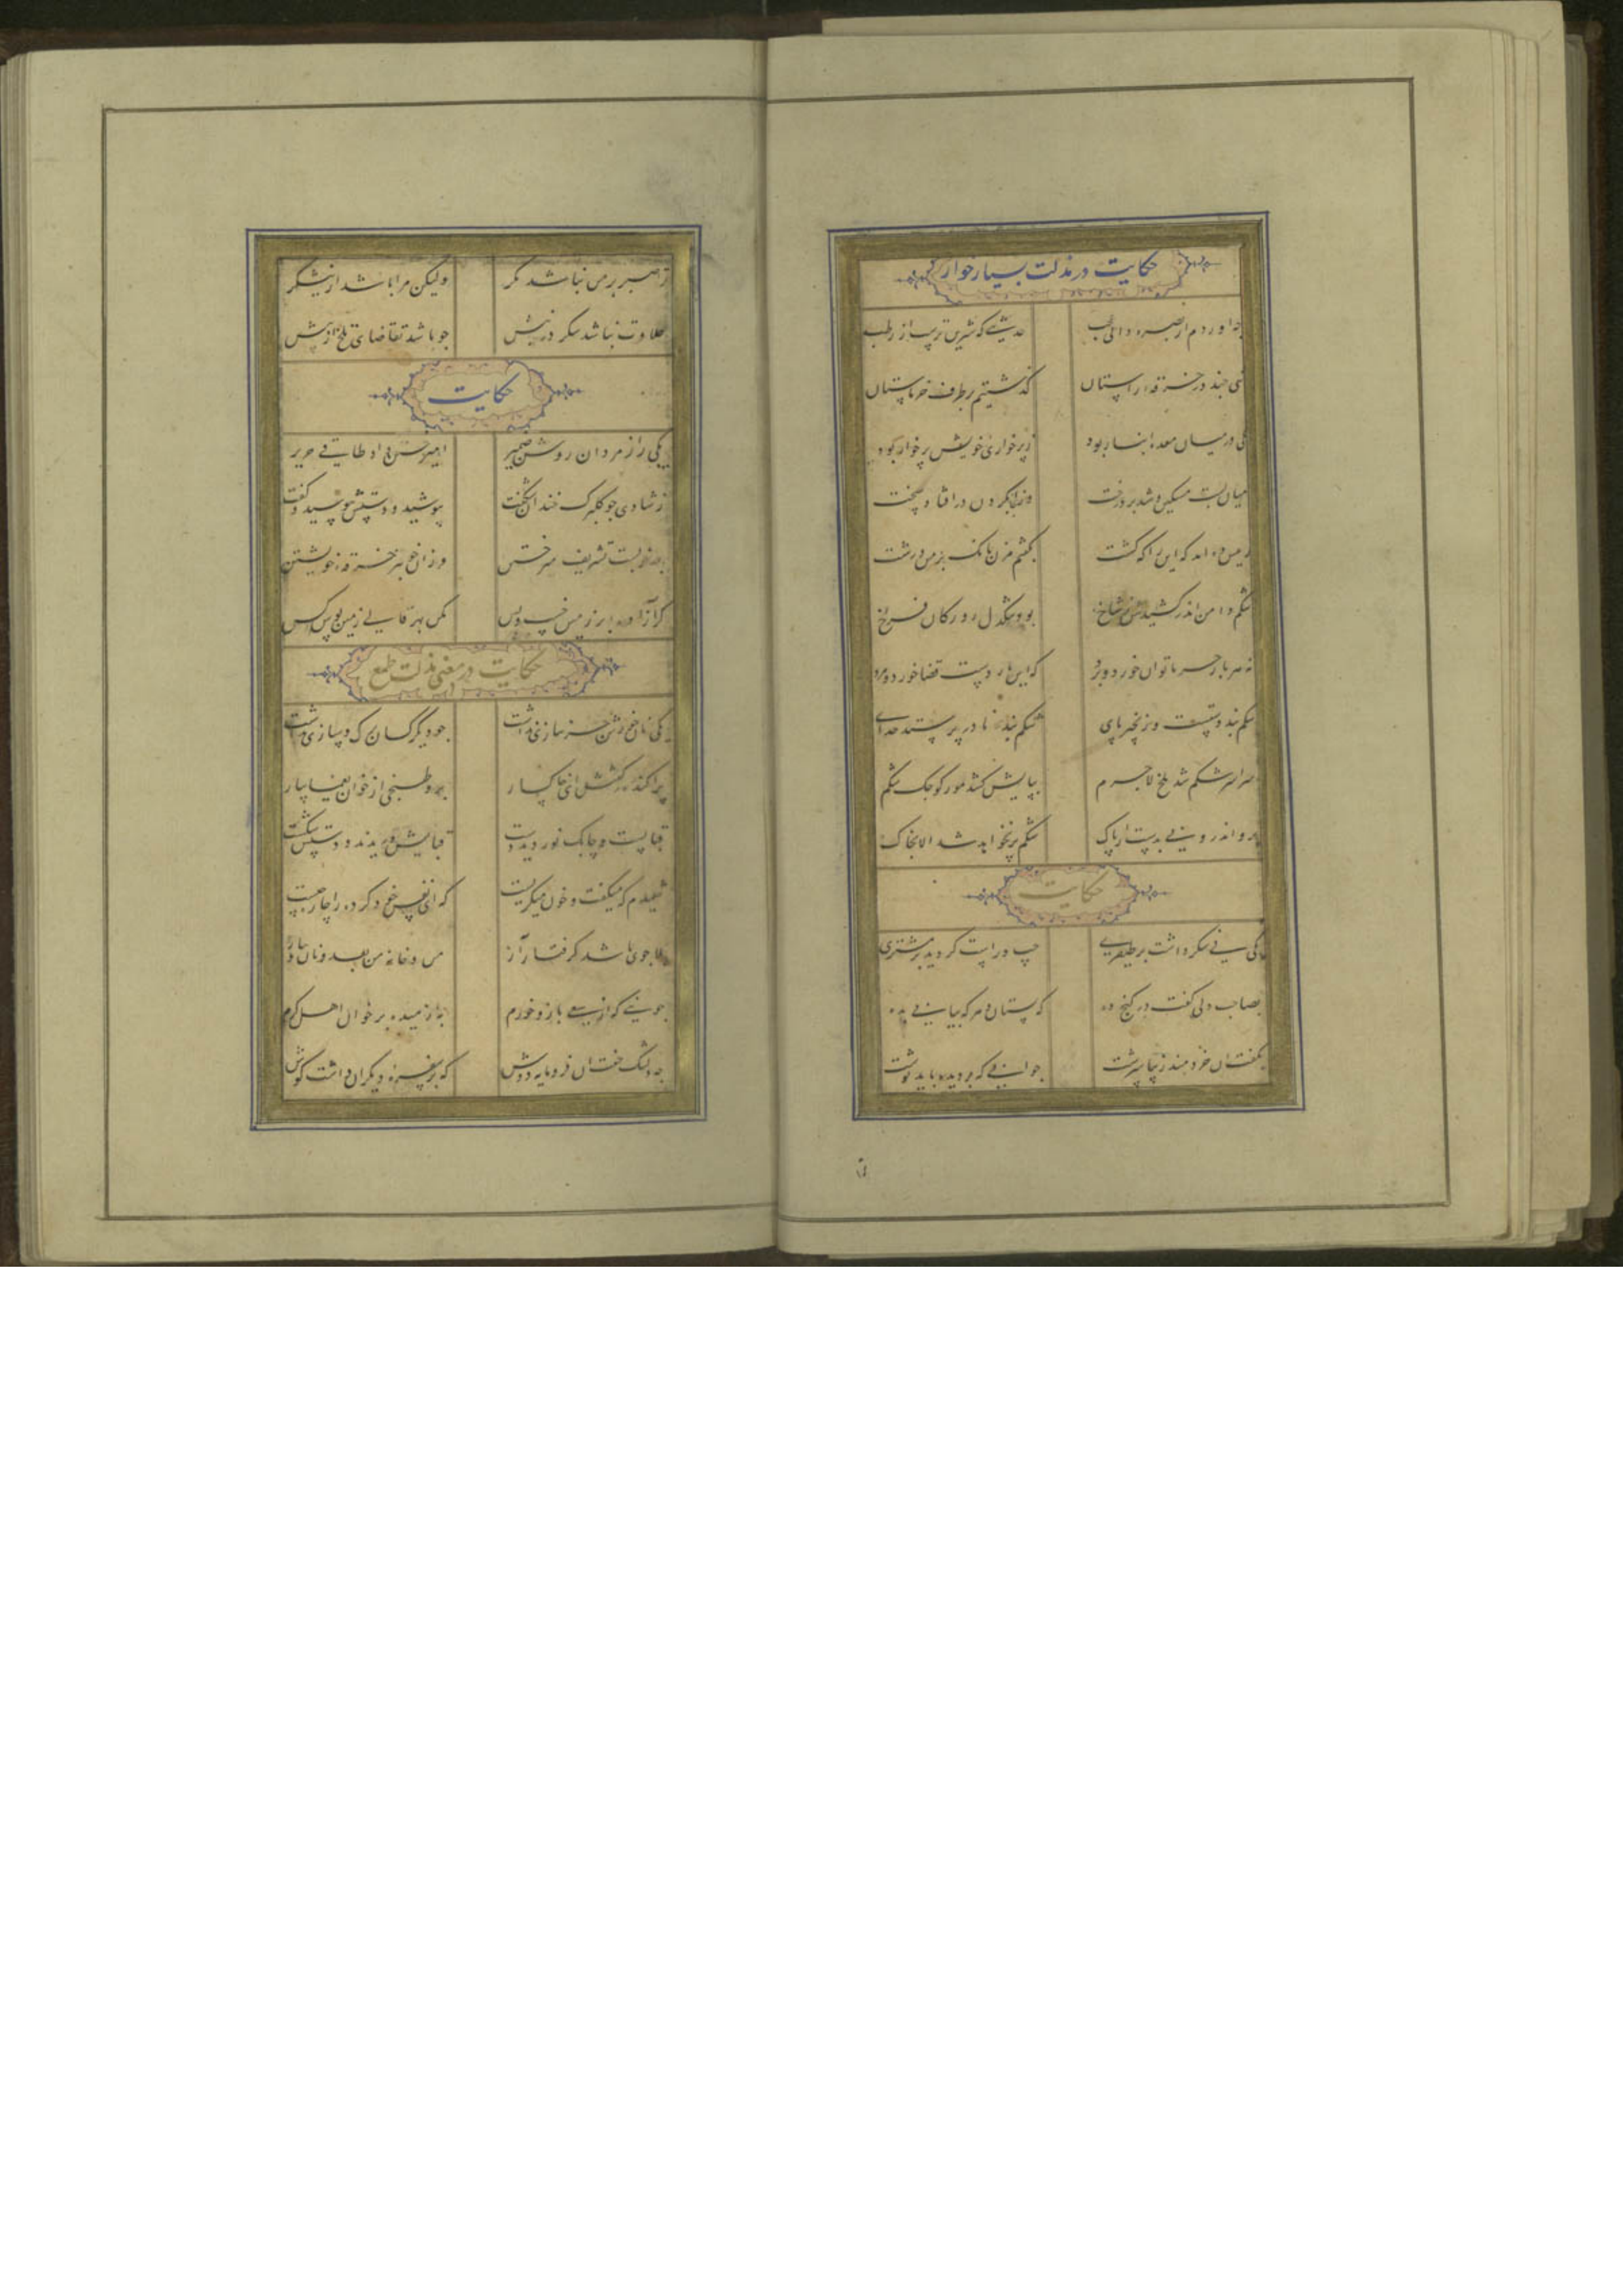 حکایت در مذلت بسیار خوار
چه اوردم از بصره دانی عجب حدیثی که شیرین ترست از رطب
تنی چند در خرقه راستان گذشتیم بر طرف خرماستان
یکی در میان معده انبار بود ز پر خواری خویش پر خوار بود
میان بست مسکین و شد بر درخت وز انجا بگردن در افتاد سخت
رییس ده امد که این را که کشت بگفتم مزن بانک بر من درشت
شکم دامن اندر کشیدش ز شاخ بود تنگدل رودکان فراخ
نه هر بار خرما توان خورد و برد که این بار دست قضا خورد و مرد
شکم بند دستست و زنجیر پای شکم بنده نادر پرستد خدای
سراسر شکم شد ملخ لاجرم بپایش کشد مور کوچک شکم
برو اندرونی بدست ار پاک شکم پر نخواهد شد الا بخاک
حکایت
یکی نی شکر داشت بر طیفری چپ و راست گردیده بر مشتری
بصاحب دلی گفت در کنج ده که بستان و هر که بیابی بده
بگفت ان خردمند زیبا سرشت جوابی که بر دیده باید نوشت
ز صبر بر من نباشد مگر ولیکن مرا باشد از نیشکر
حلاوت نباشد شکر در نیش چو باشد تقاضای تلخ از پیش
حکایت
یکی را ز مردان روشن ضمیر امیر ختن داد طاقی حریر
ز شادی چو گلبرگ خندان شگفت بپوشید و دستش ببوسید و گفت
چه خوبست تشریف میر ختن وز ان خوبتر خرقه خویشتن
گر آزاده بر زمین خسب و بس مکن بهر قالی زمین بوس کس
حکایت در معنی مذلت طمع
یکی نان خورش جز پیازی نداشت چو دیگر کسان برگ و سازی نداشت
پراکنده گفتش ای خاکسار برو طبخی از خوان یغما بیار
قبا بست و چابک نوردید دست قبایش دریدند و دستش شکست
شنیدم که میگفت و خون میگریست که ای نفس خود کرده را چاره چیست
بلا جوی باشد گرفتار آز من و خانه من بعد و نان و پیاز
جوینی که از سعی بازو خورم به از میده بر خوان اهل کرم
چه دلتنگ خفت ان فرومایه دوش که بر سفره دیگران داشت گوش